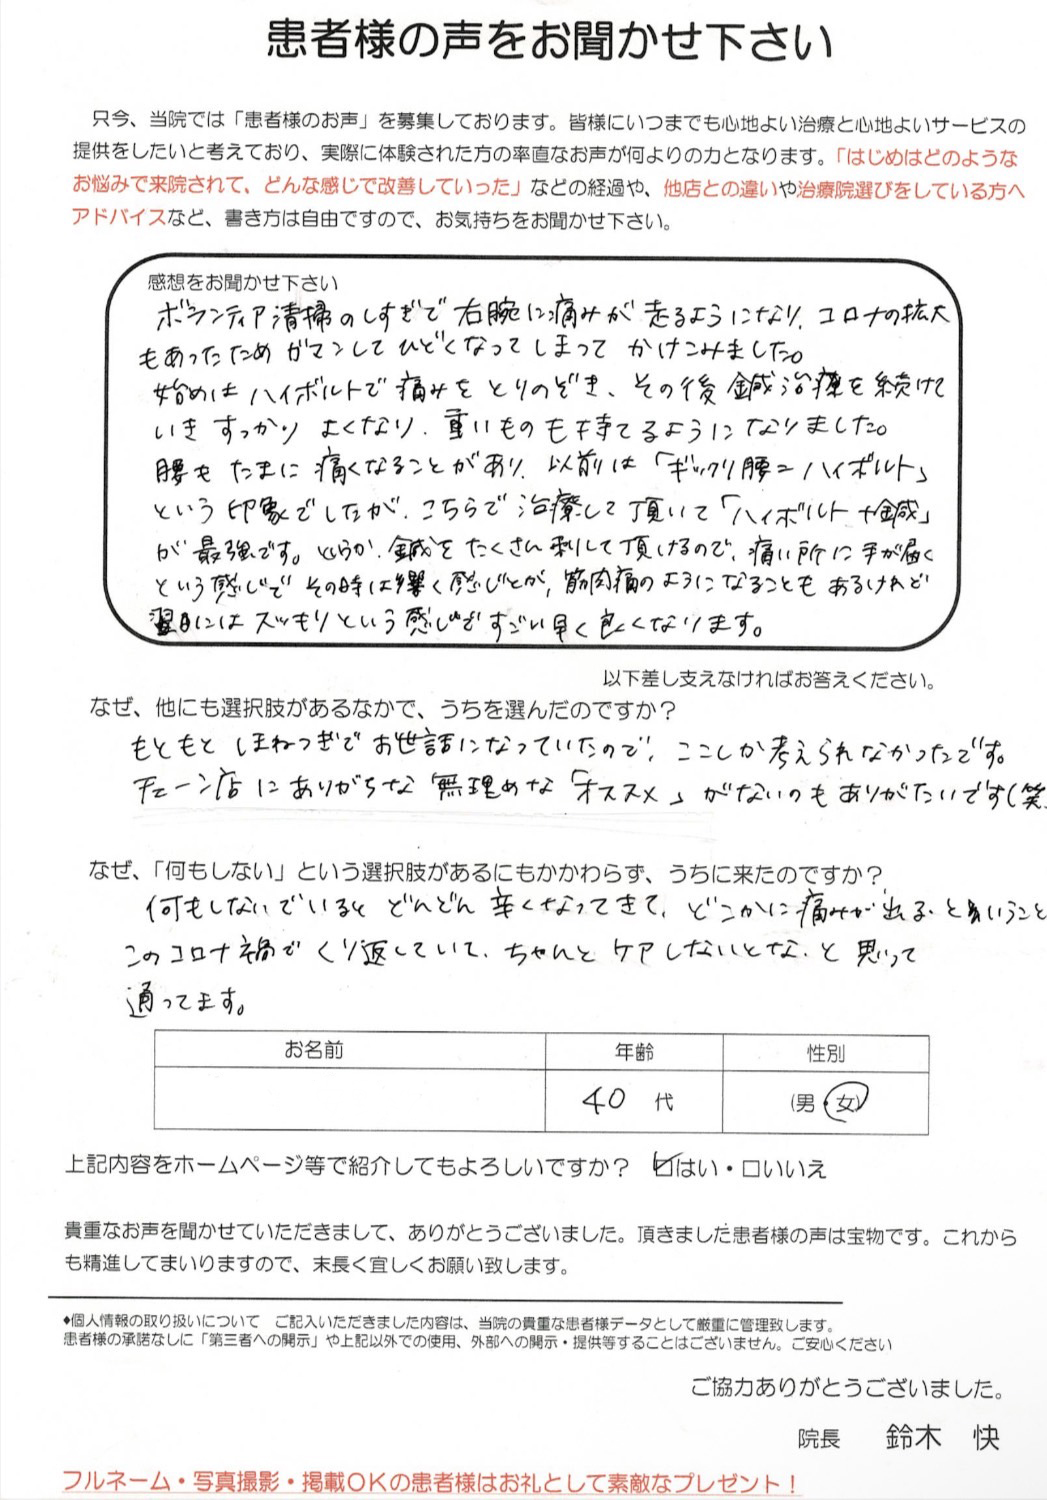 患者様の声をお聞かせ下さい
只今、当院では「患者様のお声」を募集しております。皆様にいつまでも心地よい治療と心地よいサービスの
提供をしたいと考えており、実際に体験された方の率直なお声が何よりの力となります。「はじめはどのような
お悩みで来院されて、どんな感じで改善していった」などの経過や、他店との違いや治療院選びをしている方へ
アドバイスなど、書き方は自由ですので、お気持ちをお聞かせ下さい。
感想をお聞かせ下さい
ボランティア清掃のしすぎで右腕に痛みが走るようになり、コロナの拡大
もあったためガマンしてひどくなってしまってかけこみました。
始めはハイボルトで痛みをとりのぞき、その後鍼治療を続けて
いきすっかりよくなり、重いものも持てるようになりました。
腰もたまに痛くなることがあり、以前は「ギックリ腰=ハイボルト」
という印象でしたが、こちらで治療して頂いて「ハイボルト+鍼」
が最強です。というか、鍼をたくさん刺して頂けるので、痛い所に手が届く
という感じでその時は響く感じとか、筋肉痛のようになることもあるけれど
翌日にはスッキリという感じですごい早く良くなります。
以下差し支えなければお答えください。
なぜ、他にも選択肢があるなかで、うちを選んだのですか？
もともとほねつぎでお世話になっていたので、ここしか考えられなかったです。
チェーン店にありがちな無理めな「オススメ」がないのもありがたいです(笑
なぜ、「何もしない」という選択肢があるにもかかわらず、うちに来たのですか？
何もしないでいるとどんどん辛くなってきて、どこかに痛みが出る、ということ
このコロナ禍でくり返していて、ちゃんとケアしないとな、と思って
通ってます。
お名前 年齢 性別
40 代 (男・女)
上記内容をホームページ等で紹介してもよろしいですか？ ☑はい・□いいえ
貴重なお声を聞かせていただきまして、ありがとうございました。頂きました患者様の声は宝物です。これから
も精進してまいりますので、末長く宜しくお願い致します。
◆個人情報の取り扱いについて ご記入いただきました内容は、当院の貴重な患者様データとして厳重に管理致します。
患者様の承諾なしに「第三者への開示」や上記以外での使用、外部への開示・提供等することはございません。ご安心ください
ご協力ありがとうございました。
院長 鈴木 快
フルネーム・写真撮影・掲載OKの患者様はお礼として素敵なプレゼント！